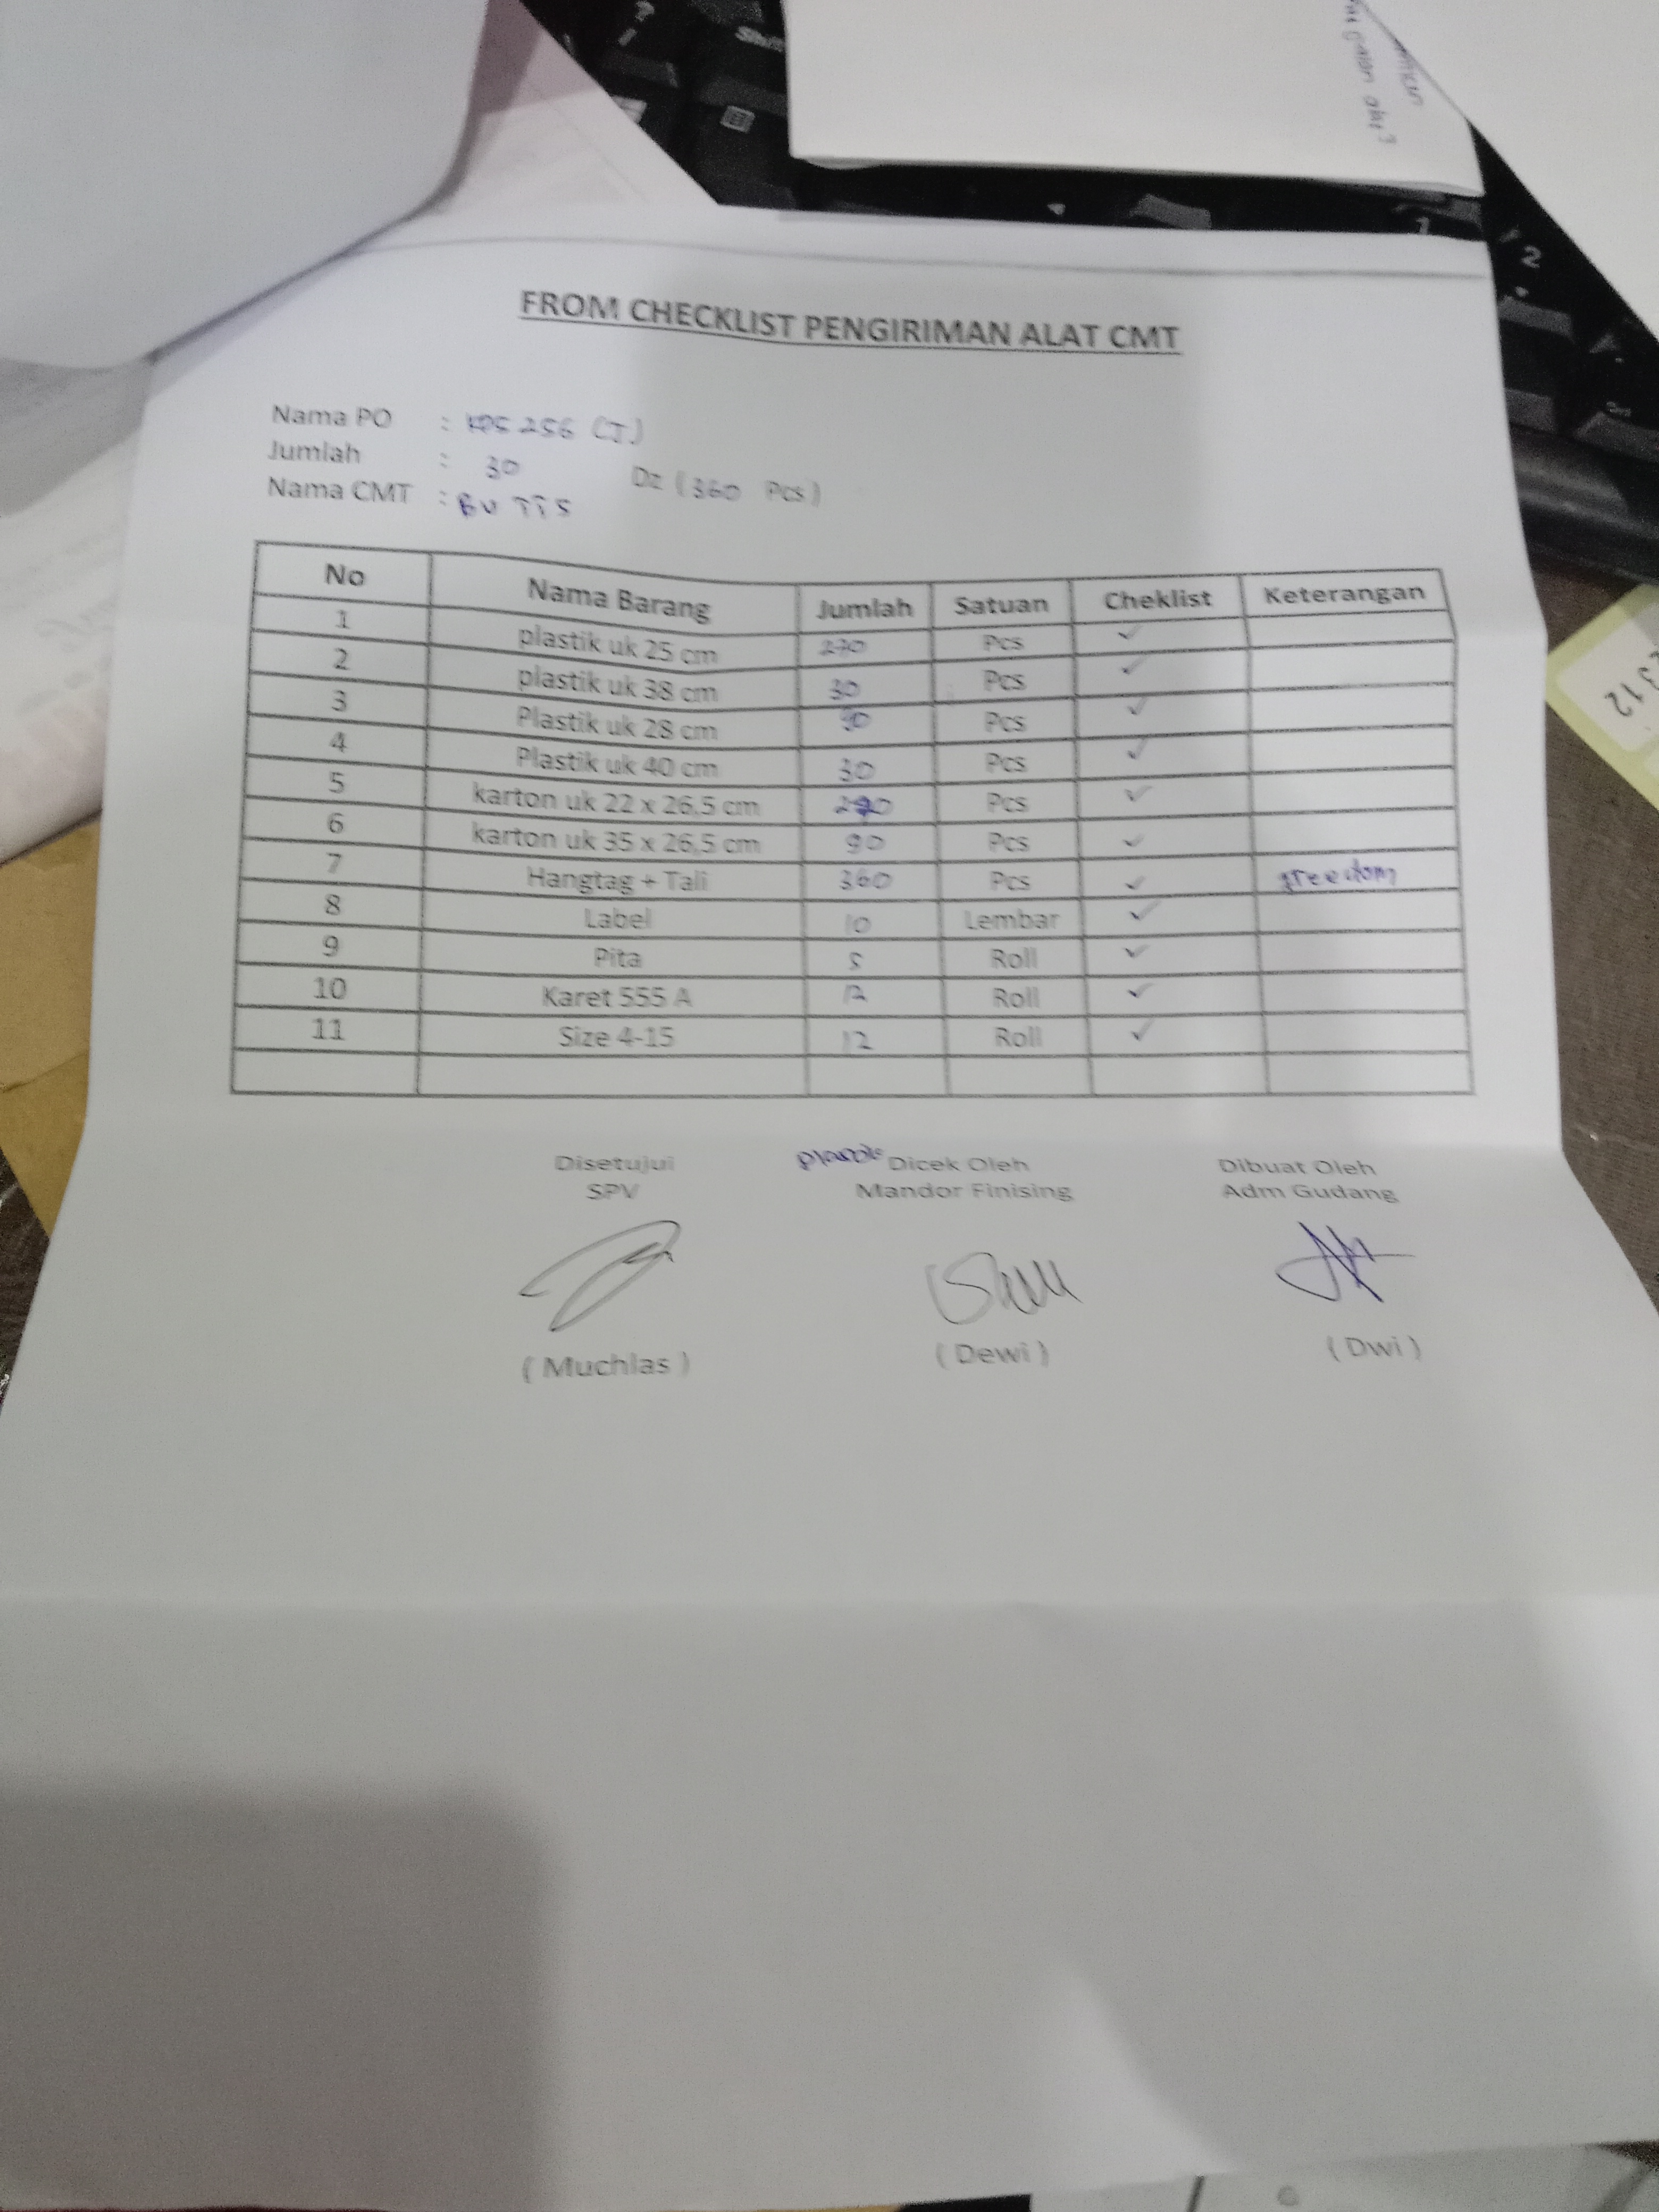 FROM CHECKLIST PENGIRIMAN ALAT CMT
Nama PO : KDS 256 (J)
Jumlah : 30 Dz (360 Pcs)
Nama CMT : BU
No Nama Barang Jumlah Satuan Cheklist Keterangan
1 plastik uk 25 cm 270 Pcs ✓
2 plastik uk 38 cm 30 Pcs ✓
3 Plastik uk 28 cm 90 Pcs ✓
4 Plastik uk 40 cm 30 Pcs ✓
5 karton uk 22 x 26,5 cm 270 Pcs ✓
6 karton uk 35 x 26,5 cm 90 Pcs ✓
7 Hangtag + Tali 360 Pcs ✓ freedom
8 Label 10 Lembar ✓
9 Pita 5 Roll ✓
10 Karet 555 A 12 Roll ✓
11 Size 4-15 12 Roll ✓
Disetujui Dicek Oleh Dibuat Oleh
SPV Mandor Finising Adm Gudang
( Muchlas ) ( Dewi ) ( Dwi )